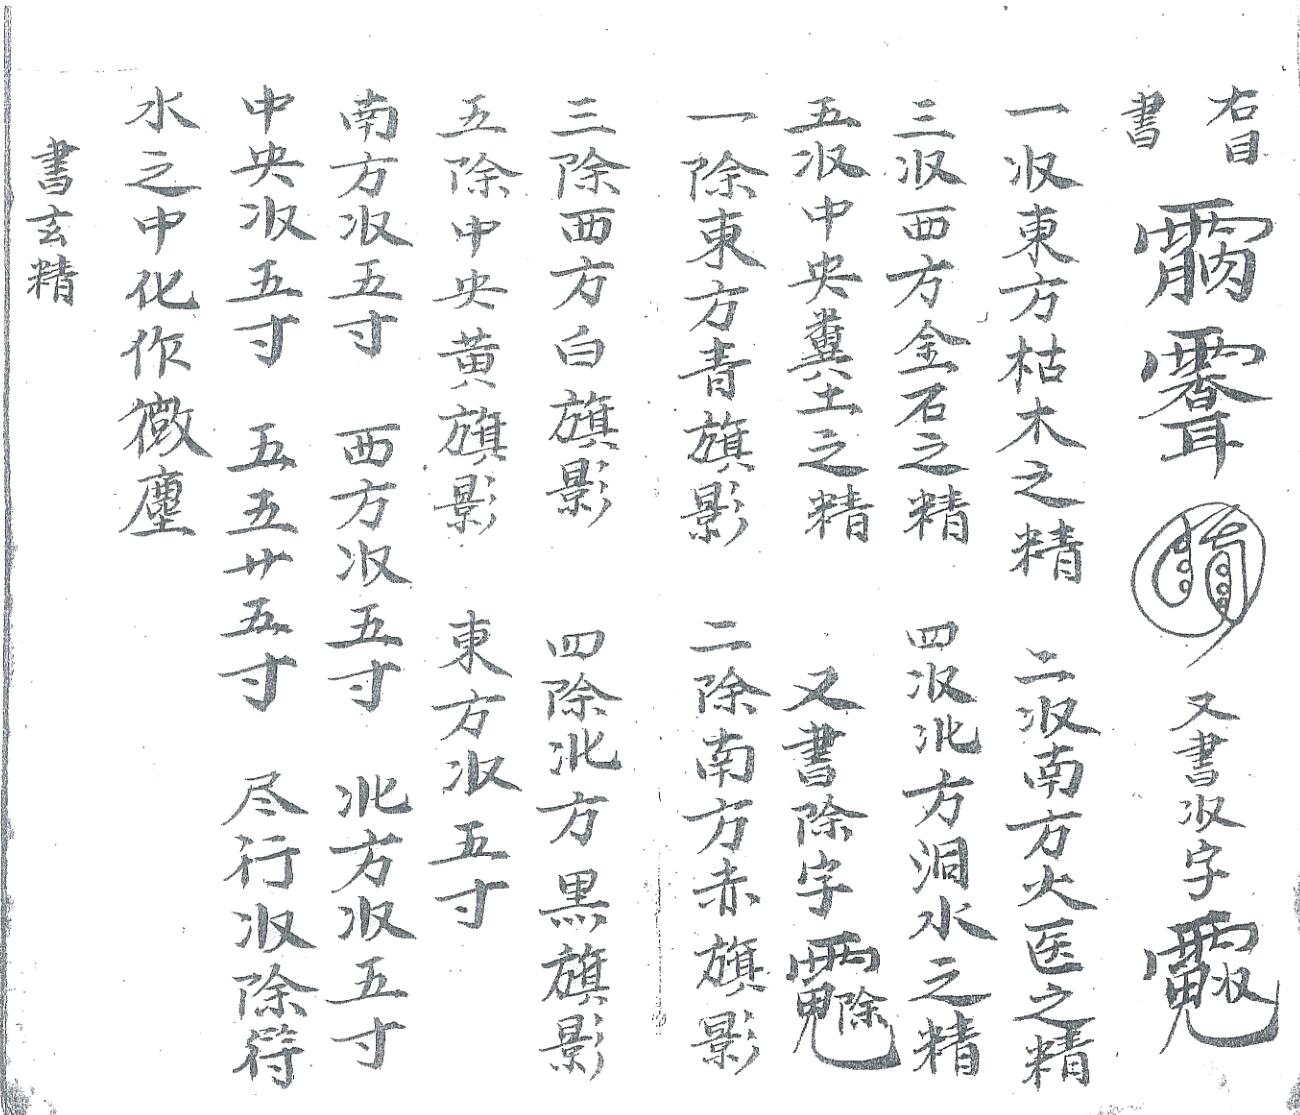 右目
書 又書汊字
一汊東方枯木之精 二汊南方火医之精
三汊西方金石之精 四汊北方洞水之精
五汊中央糞土之精 又書除字
一除東方青旗影 二除南方赤旗影
三除西方白旗影 四除北方黑旗影
五除中央黃旗影 東方汊五寸
南方汊五寸 西方汊五寸 北方汊五寸
中央汊五寸 五五廿五寸 尽行汊除符
水之中化作微塵
書玄精